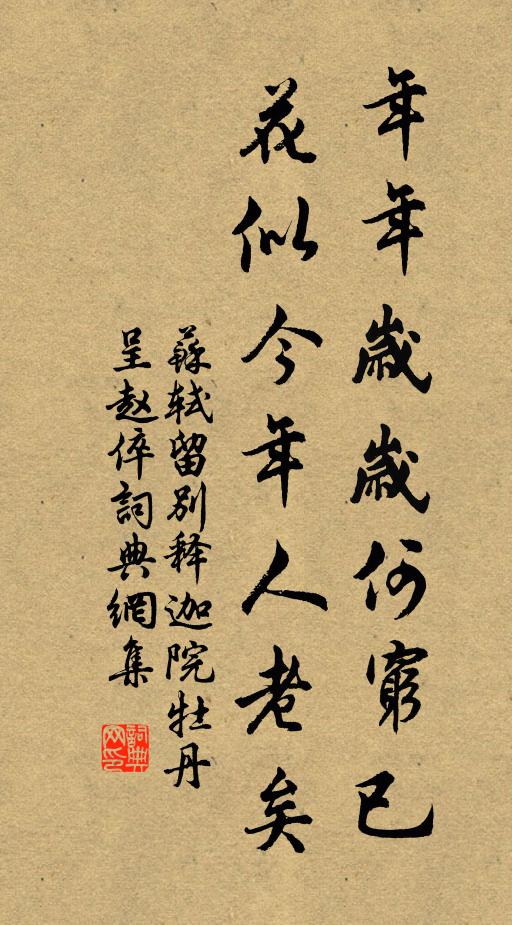 年年歲歲何窮已
花似今年人老矣
蘇軾留別释迦院牡丹
呈赵倅詞典網集
詞典
网印